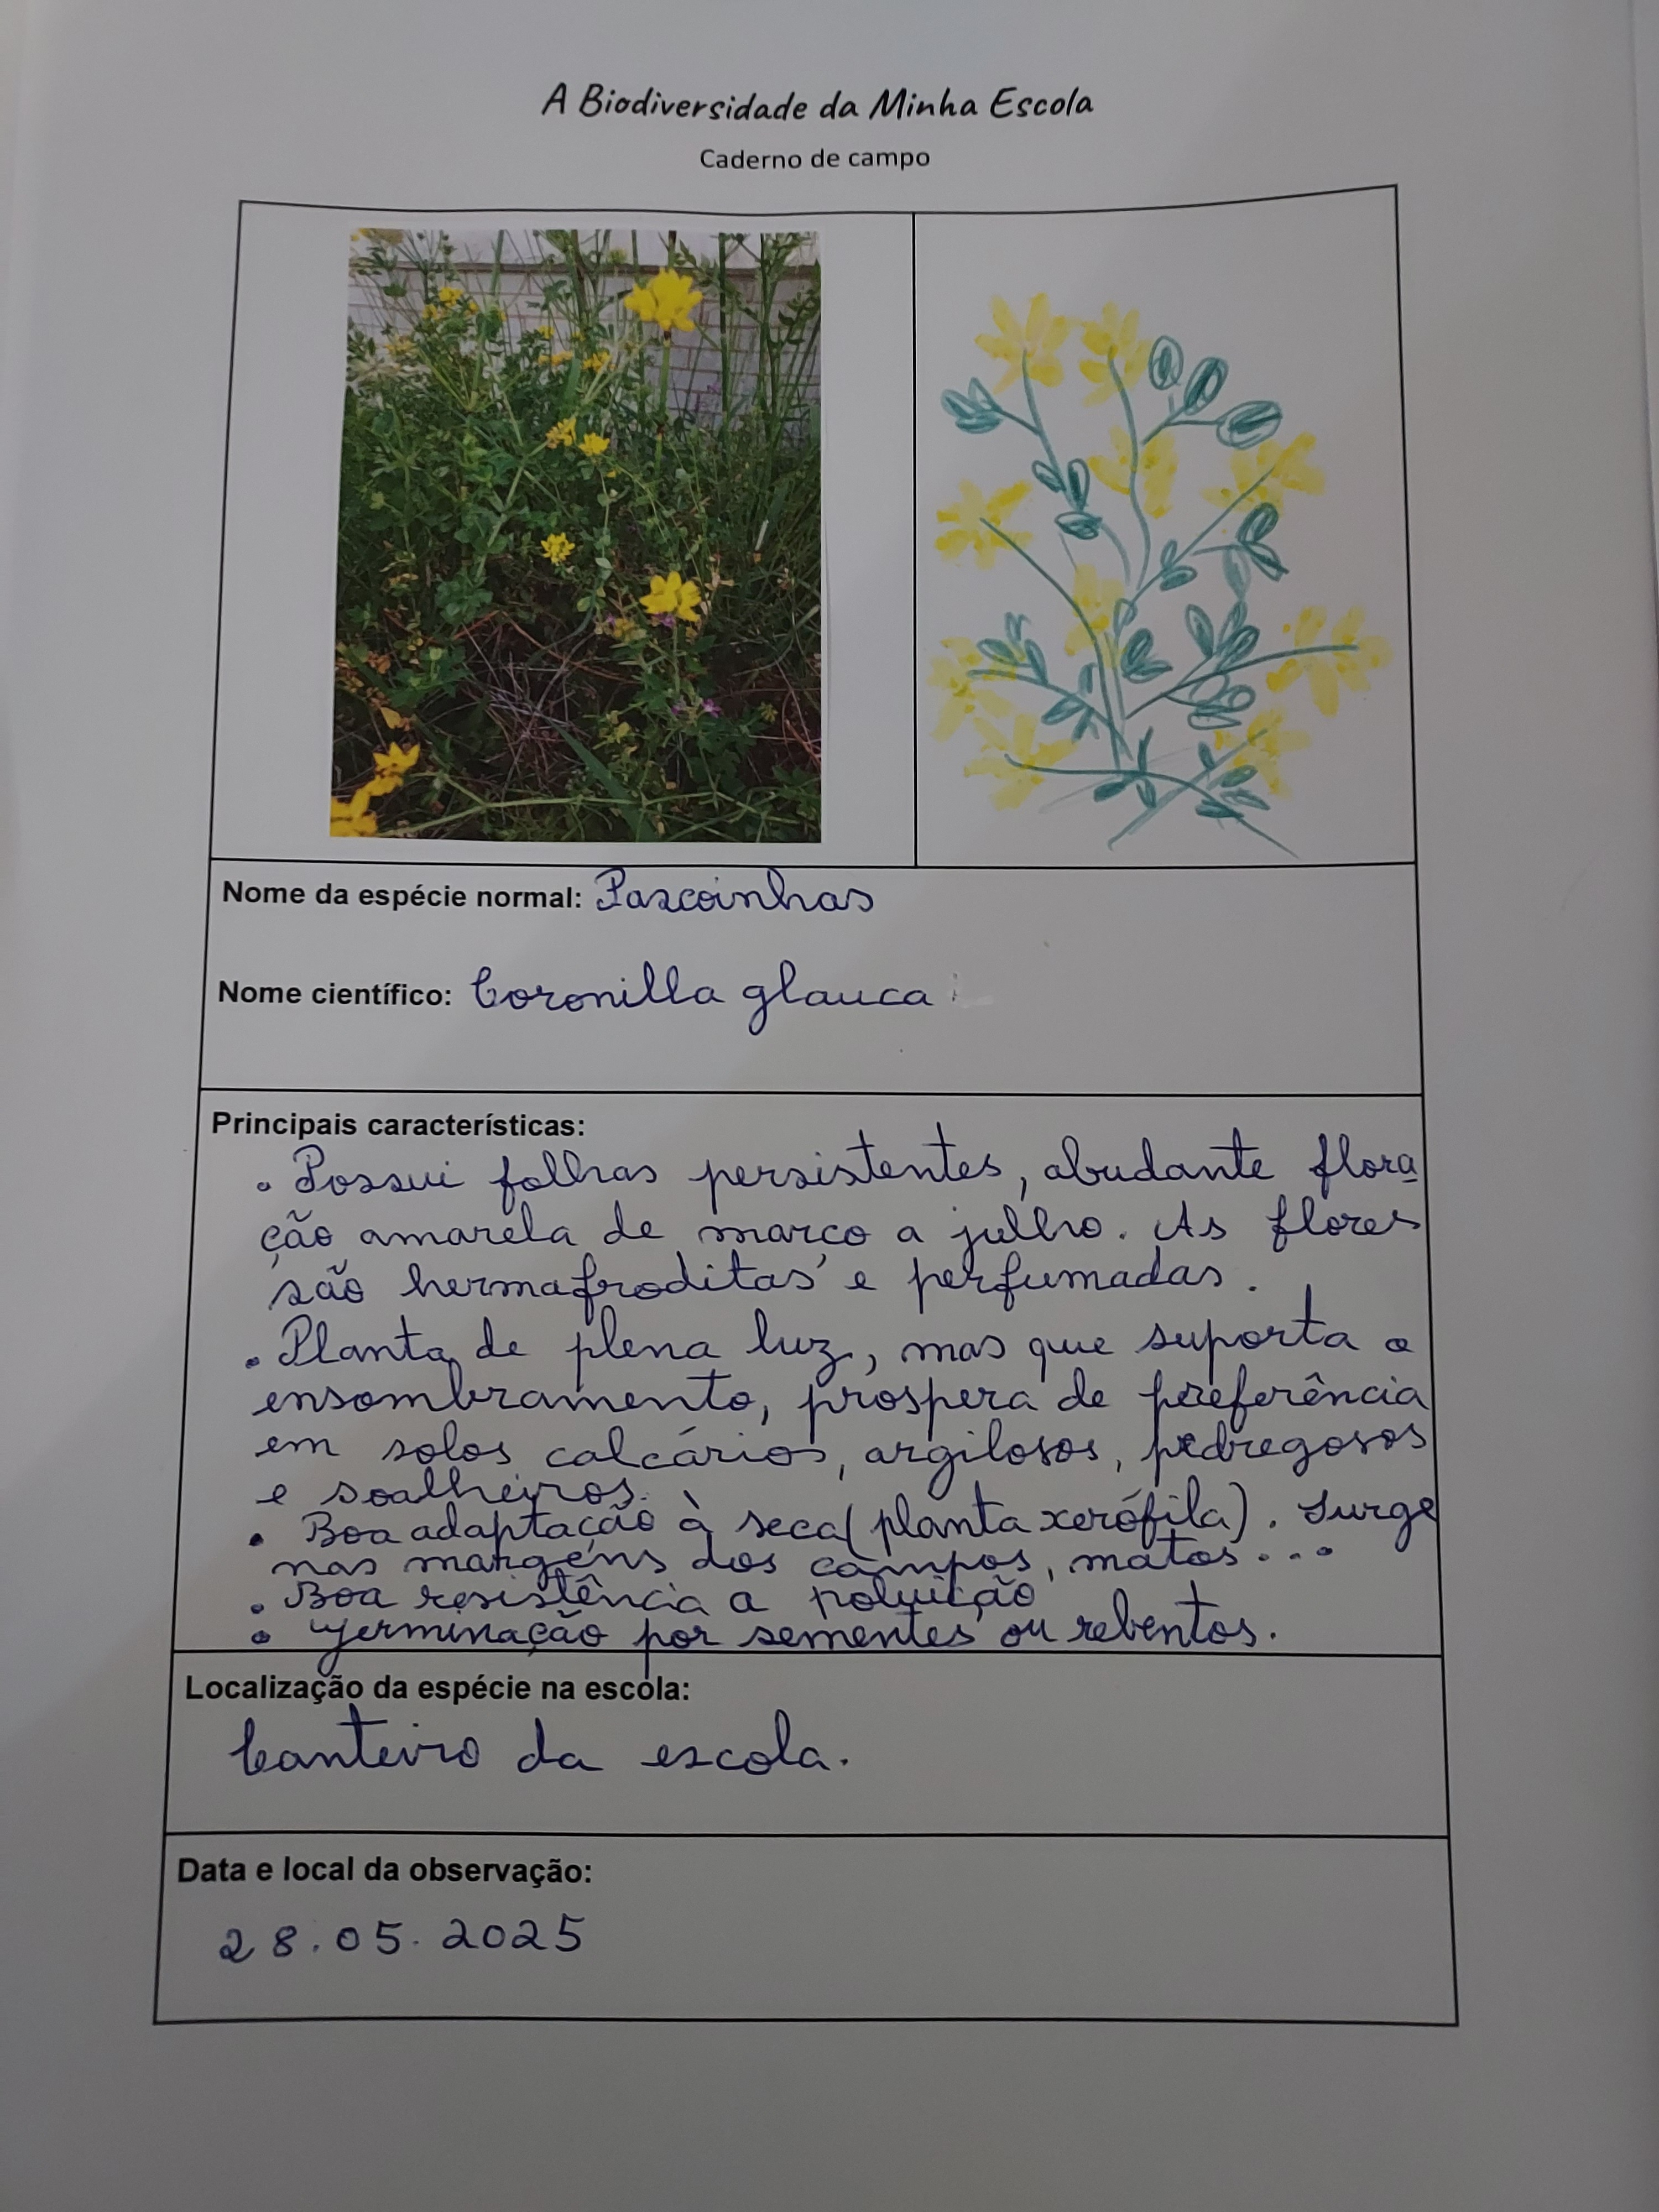 A Biodiversidade da Minha Escola
Caderno de campo
Nome da espécie normal: Pascoinhas
Nome científico: Coronilla glauca
Principais características:
• Possui folhas persistentes, abudante flora
ção amarela de março a julho. As flores
são hermafroditas e perfumadas.
• Planta de plena luz, mas que suporta o
ensombramento, prospera de preferência
em solos calcários, argilosos, pedregosos
e soalheiros.
• Boa adaptação à seca (planta xerófila). Surge
nas margens dos campos, matos...
• Boa resistência a poluição
• Germinação por sementes ou rebentos.
Localização da espécie na escola:
Canteiro da escola.
Data e local da observação:
28.05.2025